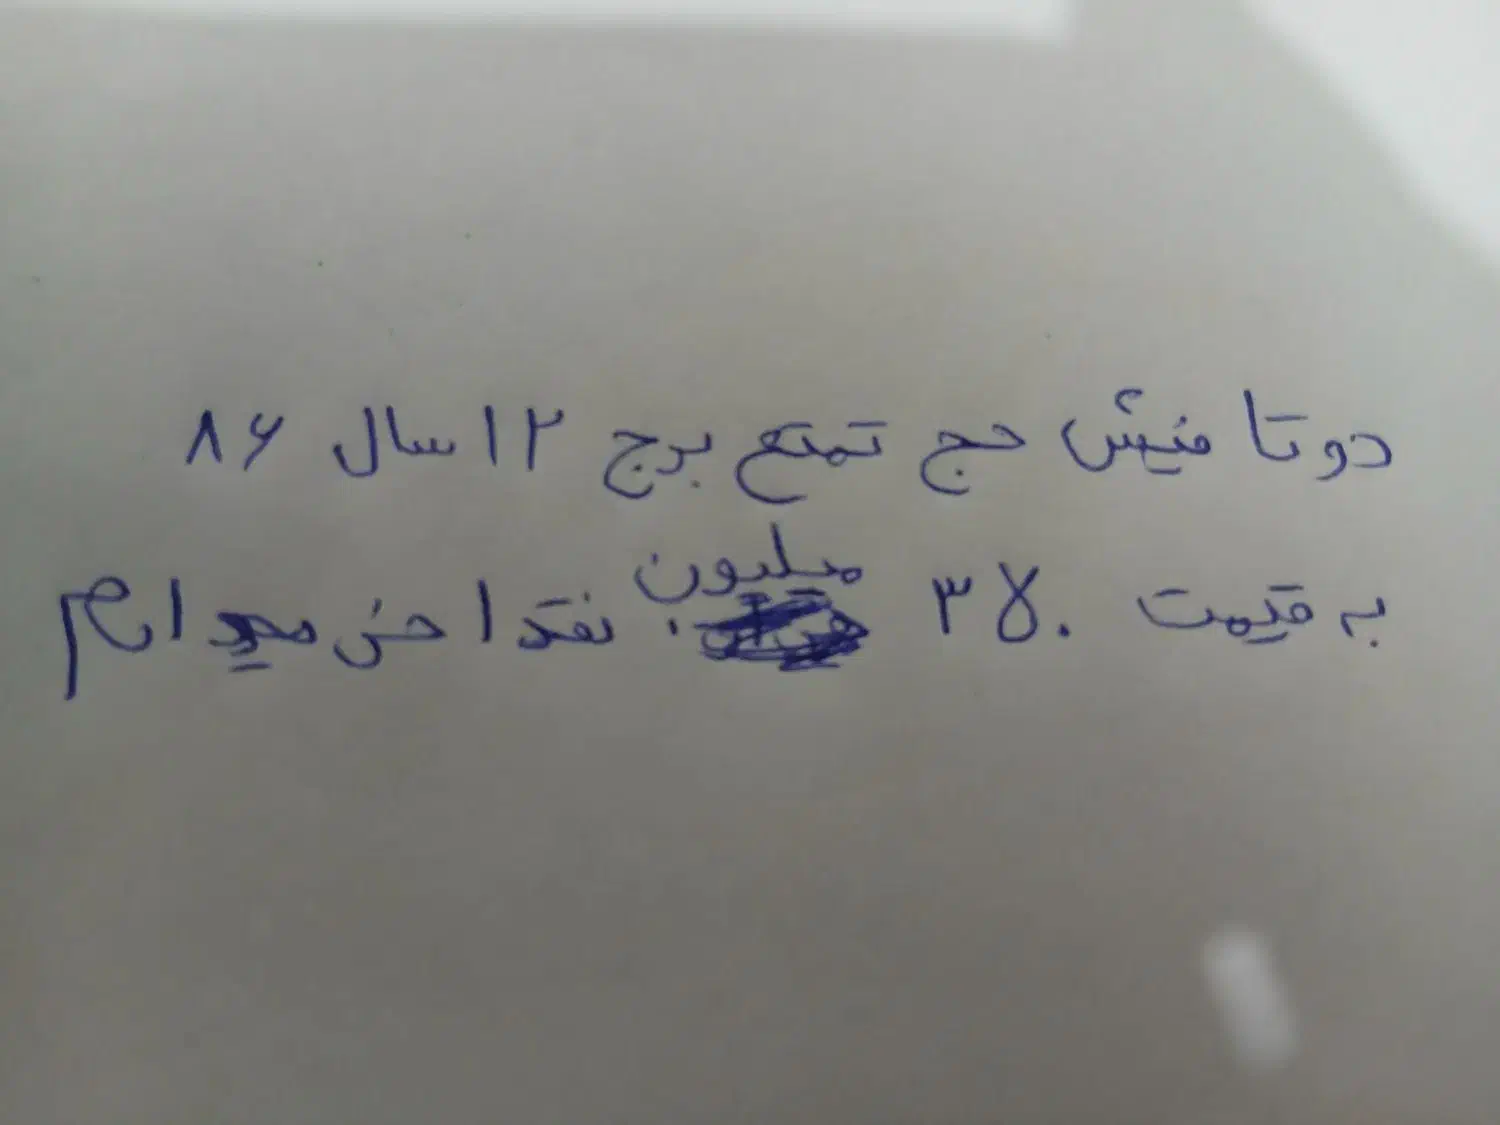 دو تا فیش حج تمتع برج ۱۲ سال ۸۶
به قیمت ۳۷۰ میلیون نقدا خریدارم